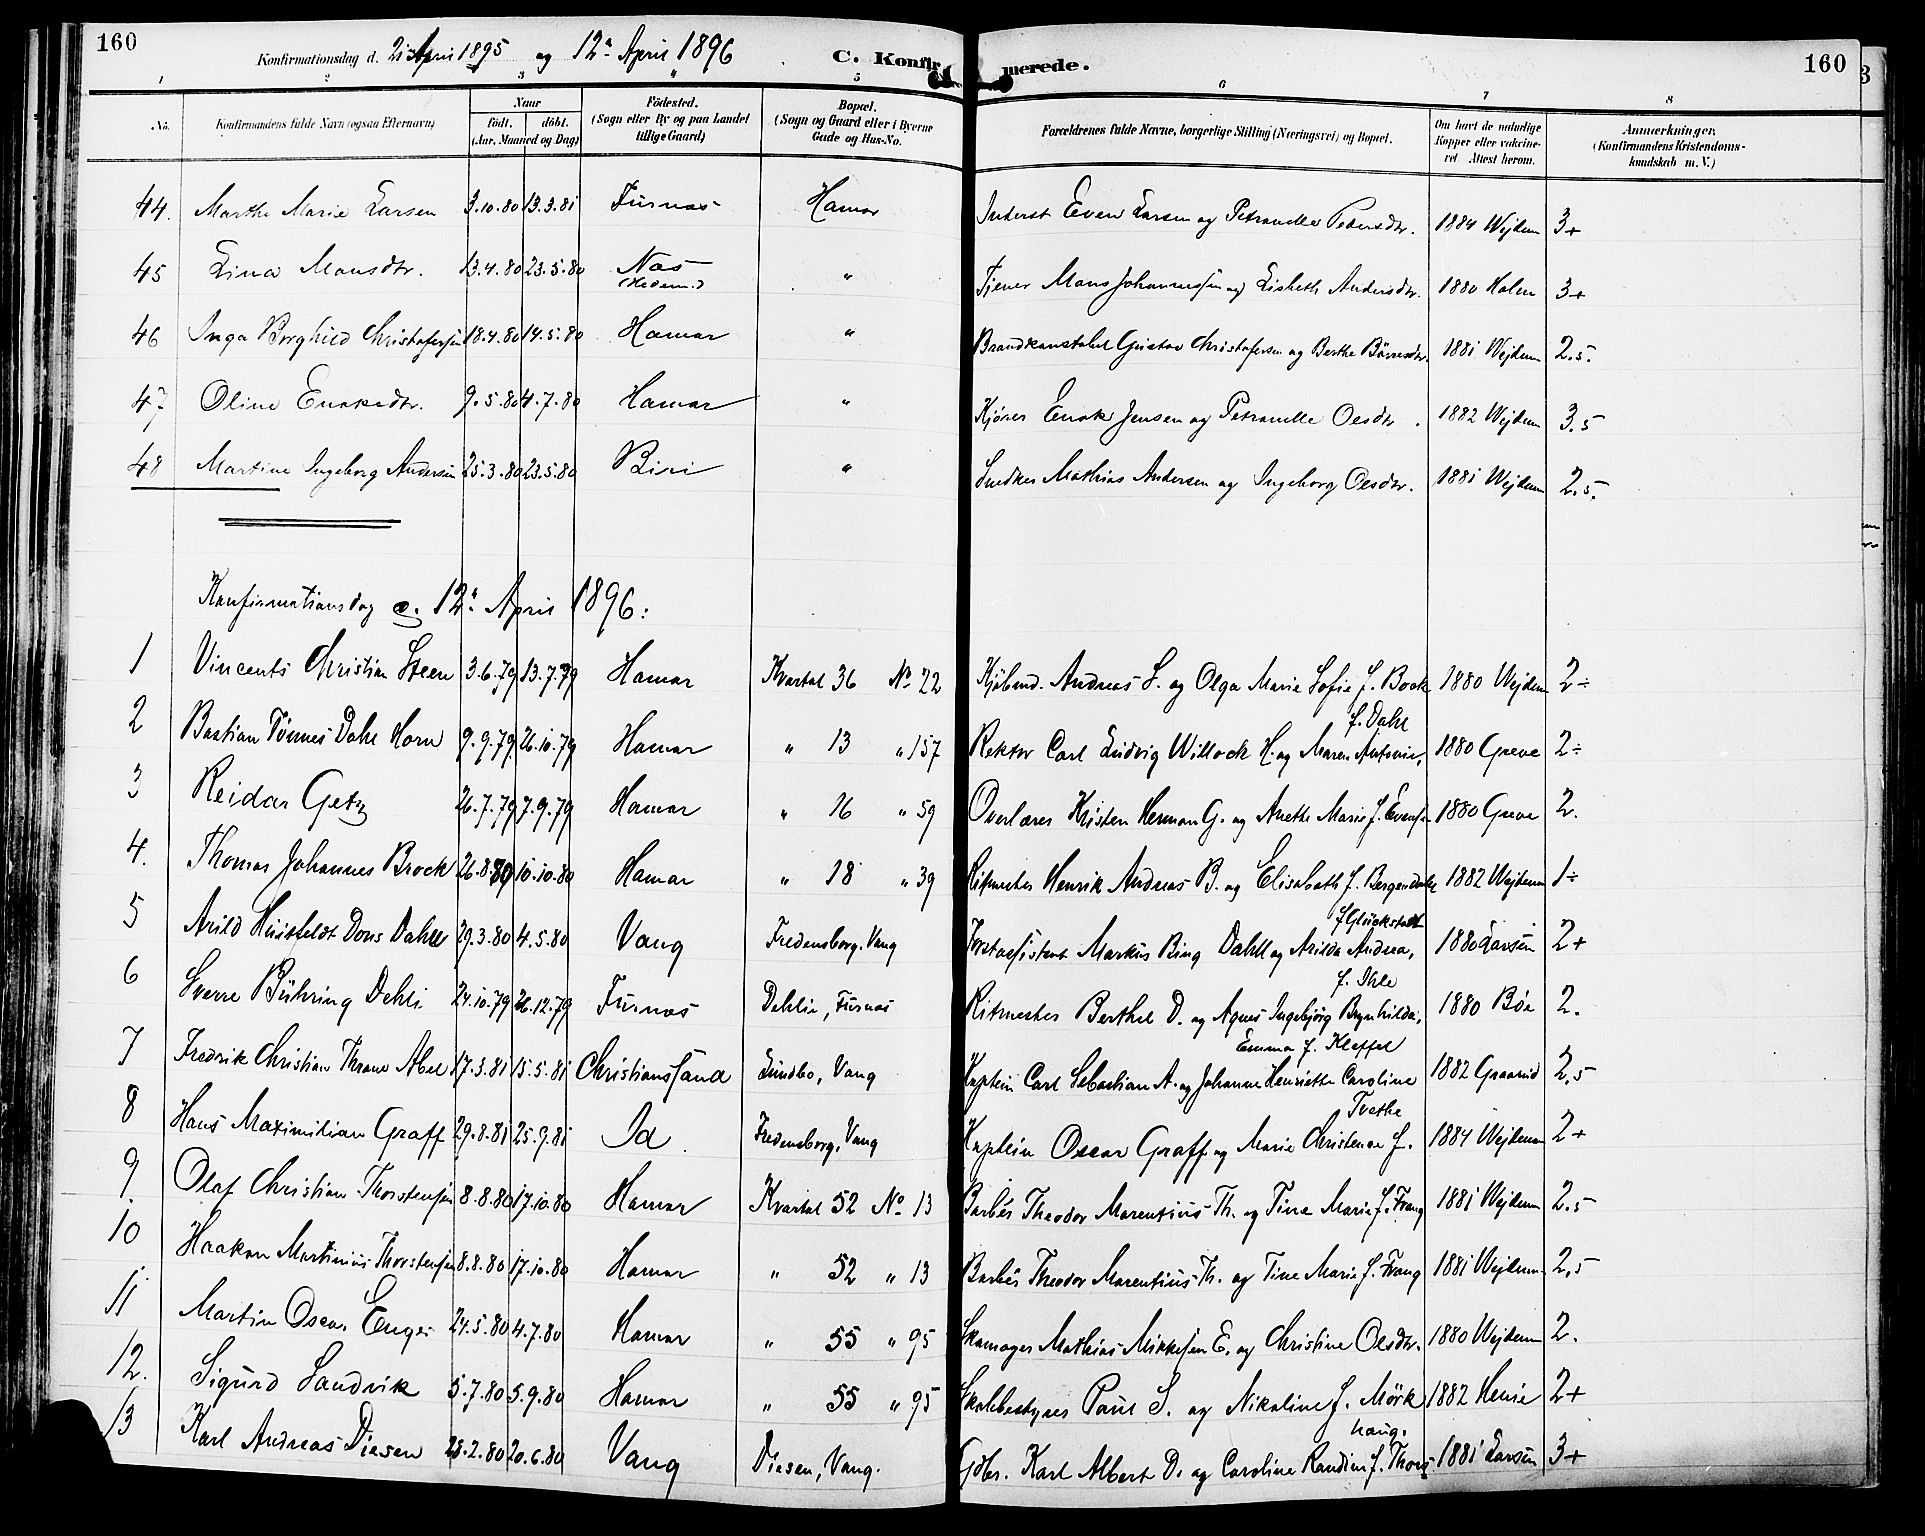 160
Konfirmationsdag d. 21 April 1895 og 12ª April 1896
C. Konfirmerede.
160
1 2 3 4 5 6 7 8
No.
Konfirmandens fulde Navn (ogsaa Efternavn)
Naar
födt. döbt.
(Aar, Maaned og Dag)
Födested.
(Sogn eller By og paa Landet
tillige Gaard)
Bopæl.
(Sogn og Gaard eller i Byerne
Gade og Hus-No.
Forældrenes fulde Navne, borgerlige Stilling (Næringsvei) og Bopæl.
Om havt de naturlige
Kopper eller vakcine-
ret. Attest herom.
Anmærkninger.
(Konfirmandens Kristendoms-
kundskab m. V.)
44. Marthe Marie Larsen 3.10.80 13.3.81 Furnæs Hamar Inderst Even Larsen og Petronelle Pedersdtr. 1884 Wejdem 3+
45 Lina Monsdtr. 13.4.80 23.5.80 Næs (Hedem.) " Tjener Mons Johannessen og Lisbeth Andersdtr. 1880 Holm 3+
46 Inga Borghild Christofersen 18.4.80 14.5.80 Hamar " Brandkonstabel Gustav Christofersen og Berthe Börresdtr. 1881 Wejdem 2.5.
47 Oline Enoksdtr. 9.5.80 4.7.80 Hamar " Kjörer Enok Jensen og Petronelle Olsdtr. 1882 Wejdem 3.5
48 Martine Ingeborg Andersen 25.3.80 23.5.80 Biri " Snedker Mathias Andersen og Ingeborg Olsdtr. 1881 Wejdem 2.5.
Konfirmationsdag d. 12ª April 1896:
1 Vincents Christian Steen 3.6.79 13.7.79 Hamar Kvartal 36 No 22 Kjöbmd. Andreas S. og Olga Marie Sofie f. Bock 1880 Wejdem 2÷
f. Dahl
2 Bastian Tönnes Dahl Horn 9.9.79 26.10.79 Hamar " 13 " 157 Rektor Carl Ludvig Willock H. og Maren Antonie, 1880 Greve 2÷
3 Reidar Getz 26.7.79 7.9.79 Hamar " 16 " 59 Overlærer Kristen Herman G. og Anette Marie f. Evensen 1880 Greve 2.
4. Thomas Johannes Brock 26.8.80 10.10.80 Hamar " 18 " 39 Ritmester Henrik Andreas B. og Elisabeth f. Bergendahl 1882 Wejdem 1÷
f. Glückstadt
5 Arild Huitfeldt Dons Dahll 29.3.80 4.5.80 Vang Fredensborg, Vang Forstassistent Markus Bing Dahll og Arilda Andrea, 1880 Larsen 2+
f. Ihle
6 Sverre Bühring Dehli 24.10.79 26.12.79 Furnæs Dehlie, Furnæs Ritmester Berthel D. og Agnes Ingebjörg Brynhilda, 1880 Böe 2.
Emma f. Kleffel
7 Fredrik Christian Thrane Abel 17.3.81 15.5.81 Christianssand Sundbo, Vang Kaptein Carl Sebastian A. og Johanne Henriette Caroline 1882 Graarud 2,5
Trethe
8 Hans Maximilian Graff 29.8.81 25.9.81 Id. Fredensborg, Vang Kaptein Oscar Graff og Marie Christence f. 1884 Wejdem 2+
9. Olaf Christian Thorstensen 8.8.80 17.10.80 Hamar Kvartal 52 No 13 Barbér Theodor Marentius Th. og Tine Marie f. Frang 1881 Wejdem 2.5
10 Haakon Martinius Thorstensen 8.8.80 17.10.80 Hamar " 52 " 13 Barbér Theodor Marentius Th. og Tine Marie f. Frang 1881 Wejdem 2,5
11 Martin Oscar Enger 24.5.80 4.7.80 Hamar " 55 " 95 Skomager Mathias Mikkelsen E. og Christine Olsdtr. 1880 Wejdem 2.
12. Sigurd Sandvik 5.7.80 5.9.80 Hamar " 55 " 95 Skolebestyrer Paul S. og Nikoline f. Mörk 1882 Henie 2+
haug.
13 Karl Andreas Diesen 28.2.80 20.6.80 Vang Diesen, Vang. Gdbr. Karl Albert D. og Caroline Randine f. Thors 1881 Larsen 3+